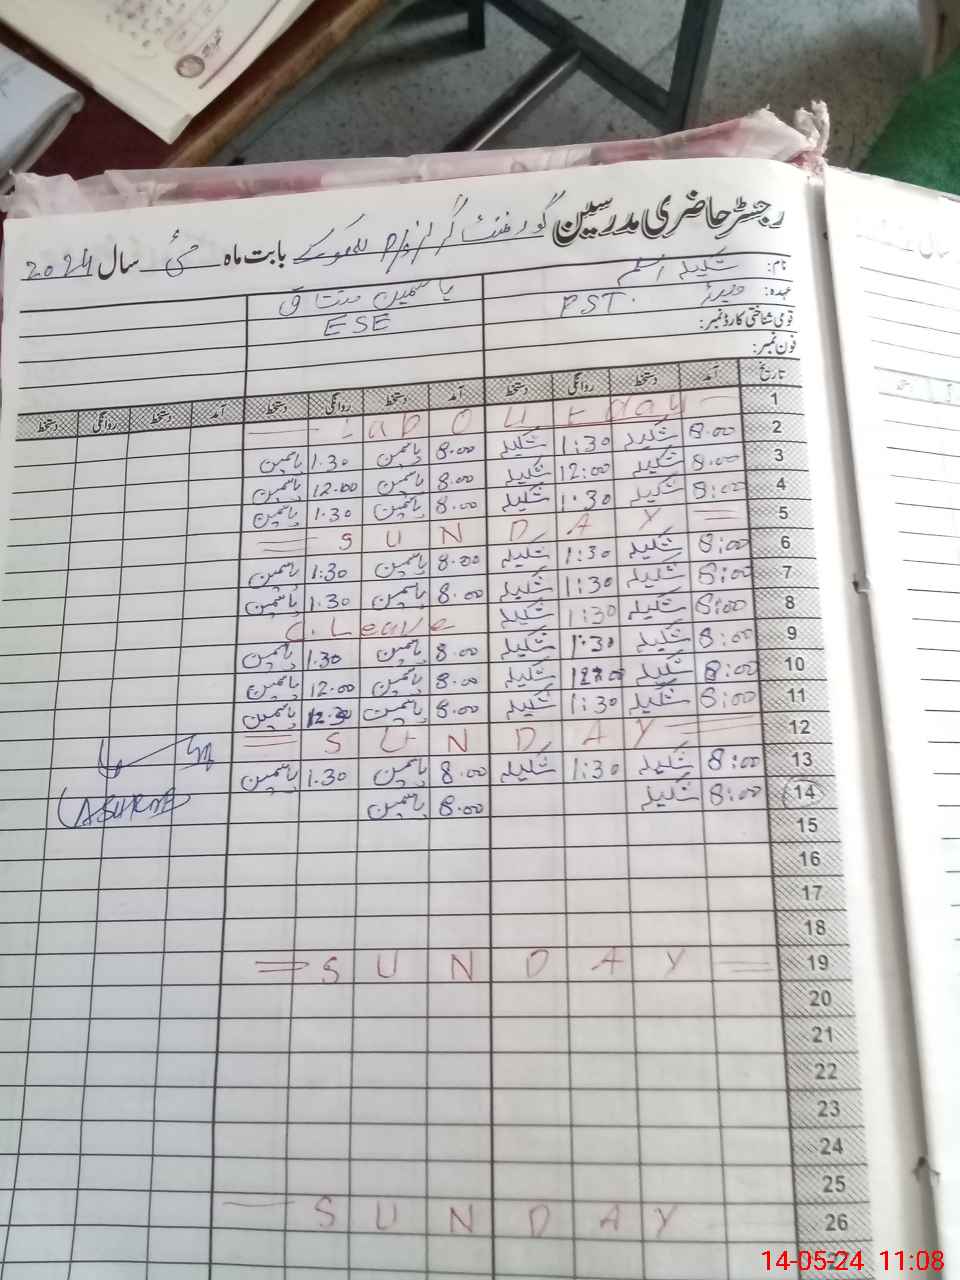 رجسٹر حاضری مدرسین گورنمنٹ گرلز P/S بابت ماہ مئی سال 2024
نام: شکیلہ اسلم یاسمین مشتاق
عہدہ: PST. ESE
قومی شناختی کارڈ نمبر:
فون نمبر:
تاریخ آمد دستخط روانگی دستخط آمد دستخط روانگی دستخط آمد دستخط روانگی دستخط
1 Labour day
2 8:00 شکیلہ 1:30 شکیلہ 8.00 یاسمین 1.30 یاسمین
3 8:00 شکیلہ 12:00 شکیلہ 8.00 یاسمین 12.00 یاسمین
4 8:00 شکیلہ 1:30 شکیلہ 8.00 یاسمین 1.30 یاسمین
5 SUNDAY
6 8:00 شکیلہ 1:30 شکیلہ 8.00 یاسمین 1:30 یاسمین
7 8:00 شکیلہ 1:30 شکیلہ 8.00 یاسمین 1.30 یاسمین
8 8:00 شکیلہ 1:30 شکیلہ C. Leave
9 8:00 شکیلہ 1:30 شکیلہ 8.00 یاسمین 1.30 یاسمین
10 8:00 شکیلہ شکیلہ 8.00 یاسمین 12.00 یاسمین
11 8:00 شکیلہ 1:30 شکیلہ 8.00 یاسمین 12.30 یاسمین
12 SUNDAY
13 8:00 شکیلہ 1:30 شکیلہ 8.00 یاسمین 1.30 یاسمین
14 8:00 شکیلہ 8.00 یاسمین
15
16
17
18
19 SUNDAY
20
21
22
23
24
25
26 SUNDAY
14-05-24 11:08